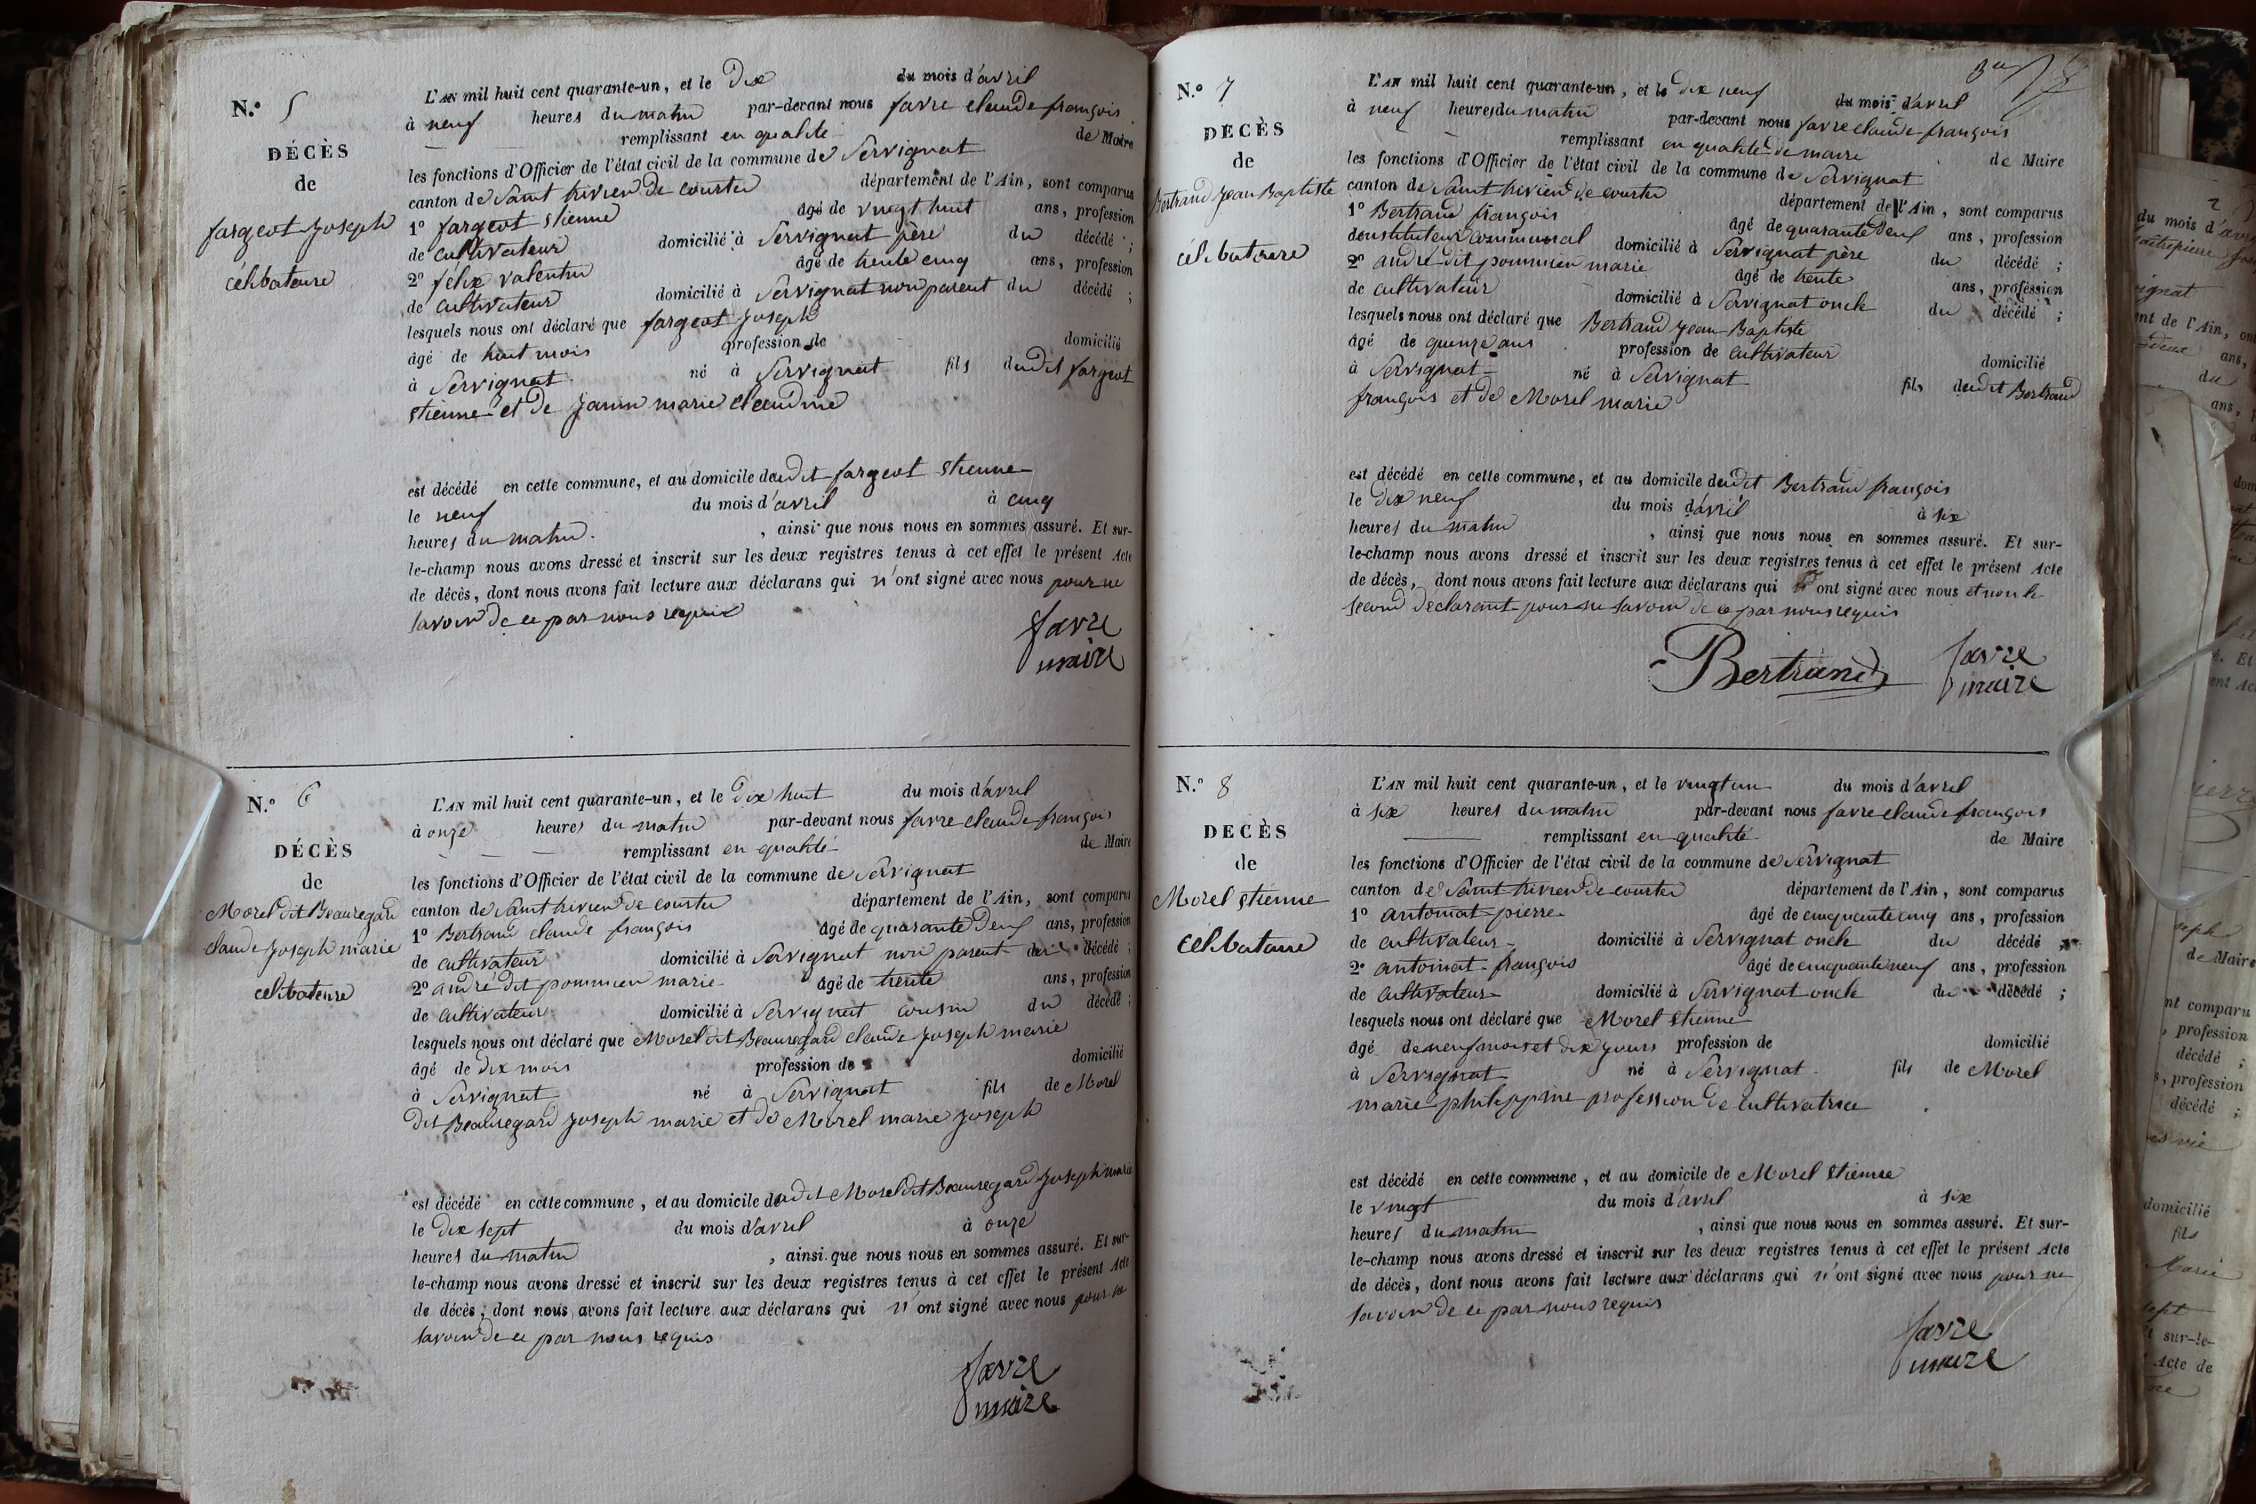 N.º 5
DÉCÈS
de
fargeot Joseph
célibataire
L'AN mil huit cent quarante-un, et le Dix du mois d'avril
à neuf heures du matin par-devant nous favre claude françois
remplissant en qualité de Maire
les fonctions d'Officier de l'état civil de la commune de Servignat
canton de Saint trivier De courtes département de l'Ain, sont comparus
1º fargeot etienne âgé de vingt huit ans, profession
de cultivateur domicilié à Servignat père du décédé ;
2º félix valentin âgé de trente cinq ans, profession
de cultivateur domicilié à Servignat non parent du décédé ;
lesquels nous ont déclaré que fargeot Joseph
âgé de huit mois profession de domicilié
à Servignat né à Servignat fils dudit fargeot
etienne et de Janin marie claudine
est décédé en cette commune, et au domicile dudit fargeot etienne
le neuf du mois d'avril à cinq
heures du matin , ainsi que nous nous en sommes assuré. Et sur-
le-champ nous avons dressé et inscrit sur les deux registres tenus à cet effet le présent Acte
de décès, dont nous avons fait lecture aux déclarans qui n'ont signé avec nous pour ne
savoir de ce par nous requis
favre
maire
N.º 6
DÉCÈS
de
Morel dit Beauregard
claude Joseph marie
célibataire
L'AN mil huit cent quarante-un, et le Dix huit du mois d'avril
à onze heures du matin par-devant nous favre claude françois
remplissant en qualité de Maire
les fonctions d'Officier de l'état civil de la commune de Servignat
canton de Saint trivier de courtes département de l'Ain, sont comparus
1º Bertrand claude françois âgé de quarante Deux ans, profession
de cultivateur domicilié à Servignat non parent du décédé ;
2º andré dit pommier marie âgé de trente ans, profession
de cultivateur domicilié à Servignat cousin du décédé ;
lesquels nous ont déclaré que Morel dit Beauregard claude Joseph marie
âgé de dix mois profession de domicilié
à Servignat né à Servignat fils de Morel
dit Beauregard Joseph marie et de Morel marie Joseph
est décédé en cette commune, et au domicile dudit Morel dit Beauregard Joseph marie
le dix sept du mois d'avril à onze
heures du matin , ainsi que nous nous en sommes assuré. Et sur-
le-champ nous avons dressé et inscrit sur les deux registres tenus à cet effet le présent Acte
de décès, dont nous avons fait lecture aux déclarans qui n'ont signé avec nous pour ne
savoir de ce par nous requis
favre
maire
N.º 7
DÉCÈS
de
Bertrand Jean Baptiste
célibataire
L'AN mil huit cent quarante-un, et le dix neuf du mois d'avril
à neuf heures du matin par-devant nous favre claude françois
remplissant en qualité de maire de Maire
les fonctions d'Officier de l'état civil de la commune de Servignat
canton de Saint trivier de courtes département de l'Ain, sont comparus
1º Bertrand françois âgé de quarante Deux ans, profession
d'instituteur communal domicilié à Servignat père du décédé ;
2º andré dit pommier marie âgé de trente ans, profession
de cultivateur domicilié à Servignat oncle du décédé ;
lesquels nous ont déclaré que Bertrand Jean Baptiste
âgé de quinze ans profession de cultivateur domicilié
à Servignat né à Servignat fils dudit Bertrand
françois et de Morel marie
est décédé en cette commune, et au domicile dudit Bertrand françois
le Dix neuf du mois d'avril à six
heures du matin , ainsi que nous nous en sommes assuré. Et sur-
le-champ nous avons dressé et inscrit sur les deux registres tenus à cet effet le présent Acte
de décès, dont nous avons fait lecture aux déclarans qui ont signé avec nous et non le
second déclarant pour ne savoir de ce par nous requis
Bertrand
favre
maire
N.º 8
DÉCÈS
de
Morel etienne
célibataire
L'AN mil huit cent quarante-un, et le vingt un du mois d'avril
à six heures du matin par-devant nous favre claude françois
remplissant en qualité de Maire
les fonctions d'Officier de l'état civil de la commune de Servignat
canton de Saint trivier de courtes département de l'Ain, sont comparus
1º antoinat pierre âgé de cinquante cinq ans, profession
de cultivateur domicilié à Servignat oncle du décédé ;
2º antoinat françois âgé de cinquante neuf ans, profession
de cultivateur domicilié à Servignat oncle du décédé ;
lesquels nous ont déclaré que Morel etienne
âgé de neuf mois et dix jours profession de domicilié
à Servignat né à Servignat fils de Morel
marie philippine profession de cultivatrice
est décédé en cette commune, et au domicile de Morel etienne
le vingt du mois d'avril à six
heures du matin , ainsi que nous nous en sommes assuré. Et sur-
le-champ nous avons dressé et inscrit sur les deux registres tenus à cet effet le présent Acte
de décès, dont nous avons fait lecture aux déclarans qui n'ont signé avec nous pour ne
savoir de ce par nous requis
favre
maire